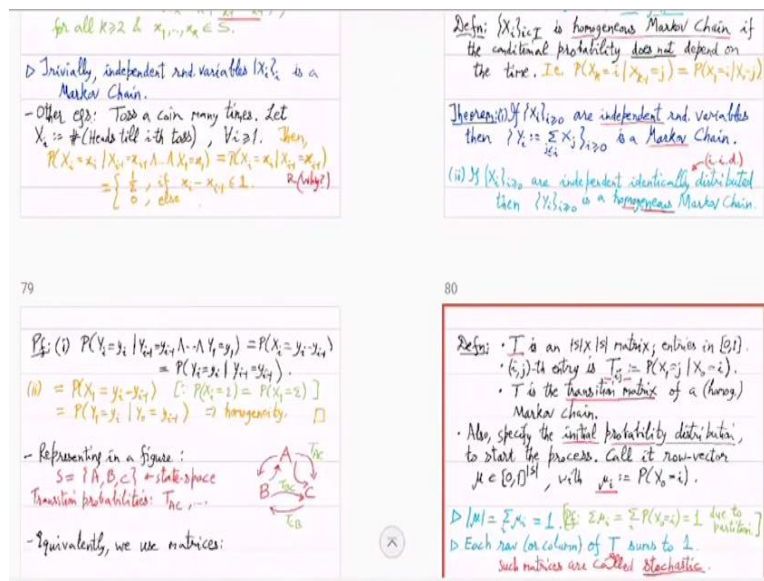 for all k≥2 & x₁,...,xₖ ∈ S.
▷ Trivially, independent rnd. variables {Xᵢ}ᵢ is a
Markov Chain.
- Other egs: Toss a coin many times. Let
Xᵢ := #(Heads till ith toss), ∀i≥1. Then,
P(Xᵢ=xᵢ | Xᵢ₋₁=xᵢ₋₁ ∧..∧ X₁=x₁) = P(Xᵢ=xᵢ | Xᵢ₋₁=xᵢ₋₁)
= { ½, if xᵢ - xᵢ₋₁ ≤ 1. (Why?)
0, else
Defn: {Xᵢ}ᵢ∈I is homogeneous Markov Chain if
the conditional probability does not depend on
the time. I.e. P(Xₖ=i | Xₖ₋₁=j) = P(X₁=i | X₀=j)
Theorem: (i) If {Xᵢ}ᵢ≥₀ are independent rnd. variables
then {Yᵢ := Σ_{j≤i} Xⱼ}ᵢ≥₀ is a Markov Chain.
(i.i.d.)
(ii) If {Xᵢ}ᵢ≥₀ are independent identically distributed
then {Yᵢ}ᵢ≥₀ is a homogeneous Markov Chain.
79
Pf: (i) P(Yᵢ=yᵢ | Yᵢ₋₁=yᵢ₋₁ ∧..∧ Y₁=y₁) = P(Xᵢ=yᵢ-yᵢ₋₁)
= P(Yᵢ=yᵢ | Yᵢ₋₁=yᵢ₋₁).
(ii) = P(X₁=yᵢ-yᵢ₋₁) [∵ P(Xᵢ=z) = P(X₁=z)]
= P(Y₁=yᵢ | Y₀=yᵢ₋₁) ⇒ homogeneity. □
- Representing in a figure:
S = {A, B, C} ← state-space
Transition probabilities: T_AC, ...
A T_AC
B T_BC C
T_CB
- Equivalently, we use matrices:
80
Defn: • T is an |S|×|S| matrix; entries in [0,1].
• (i,j)-th entry is Tᵢⱼ := P(X₁=j | X₀=i).
• T is the transition matrix of a (homog.)
Markov chain.
• Also, specify the initial probability distribution,
to start the process. Call it row-vector
μ ∈ [0,1]^|S|, with μᵢ := P(X₀=i).
▷ |μ| = Σμᵢ = 1. [Pf: Σμᵢ = ΣP(X₀=i) = 1 due to partition]
▷ Each row (or column) of T sums to 1.
such matrices are called stochastic.